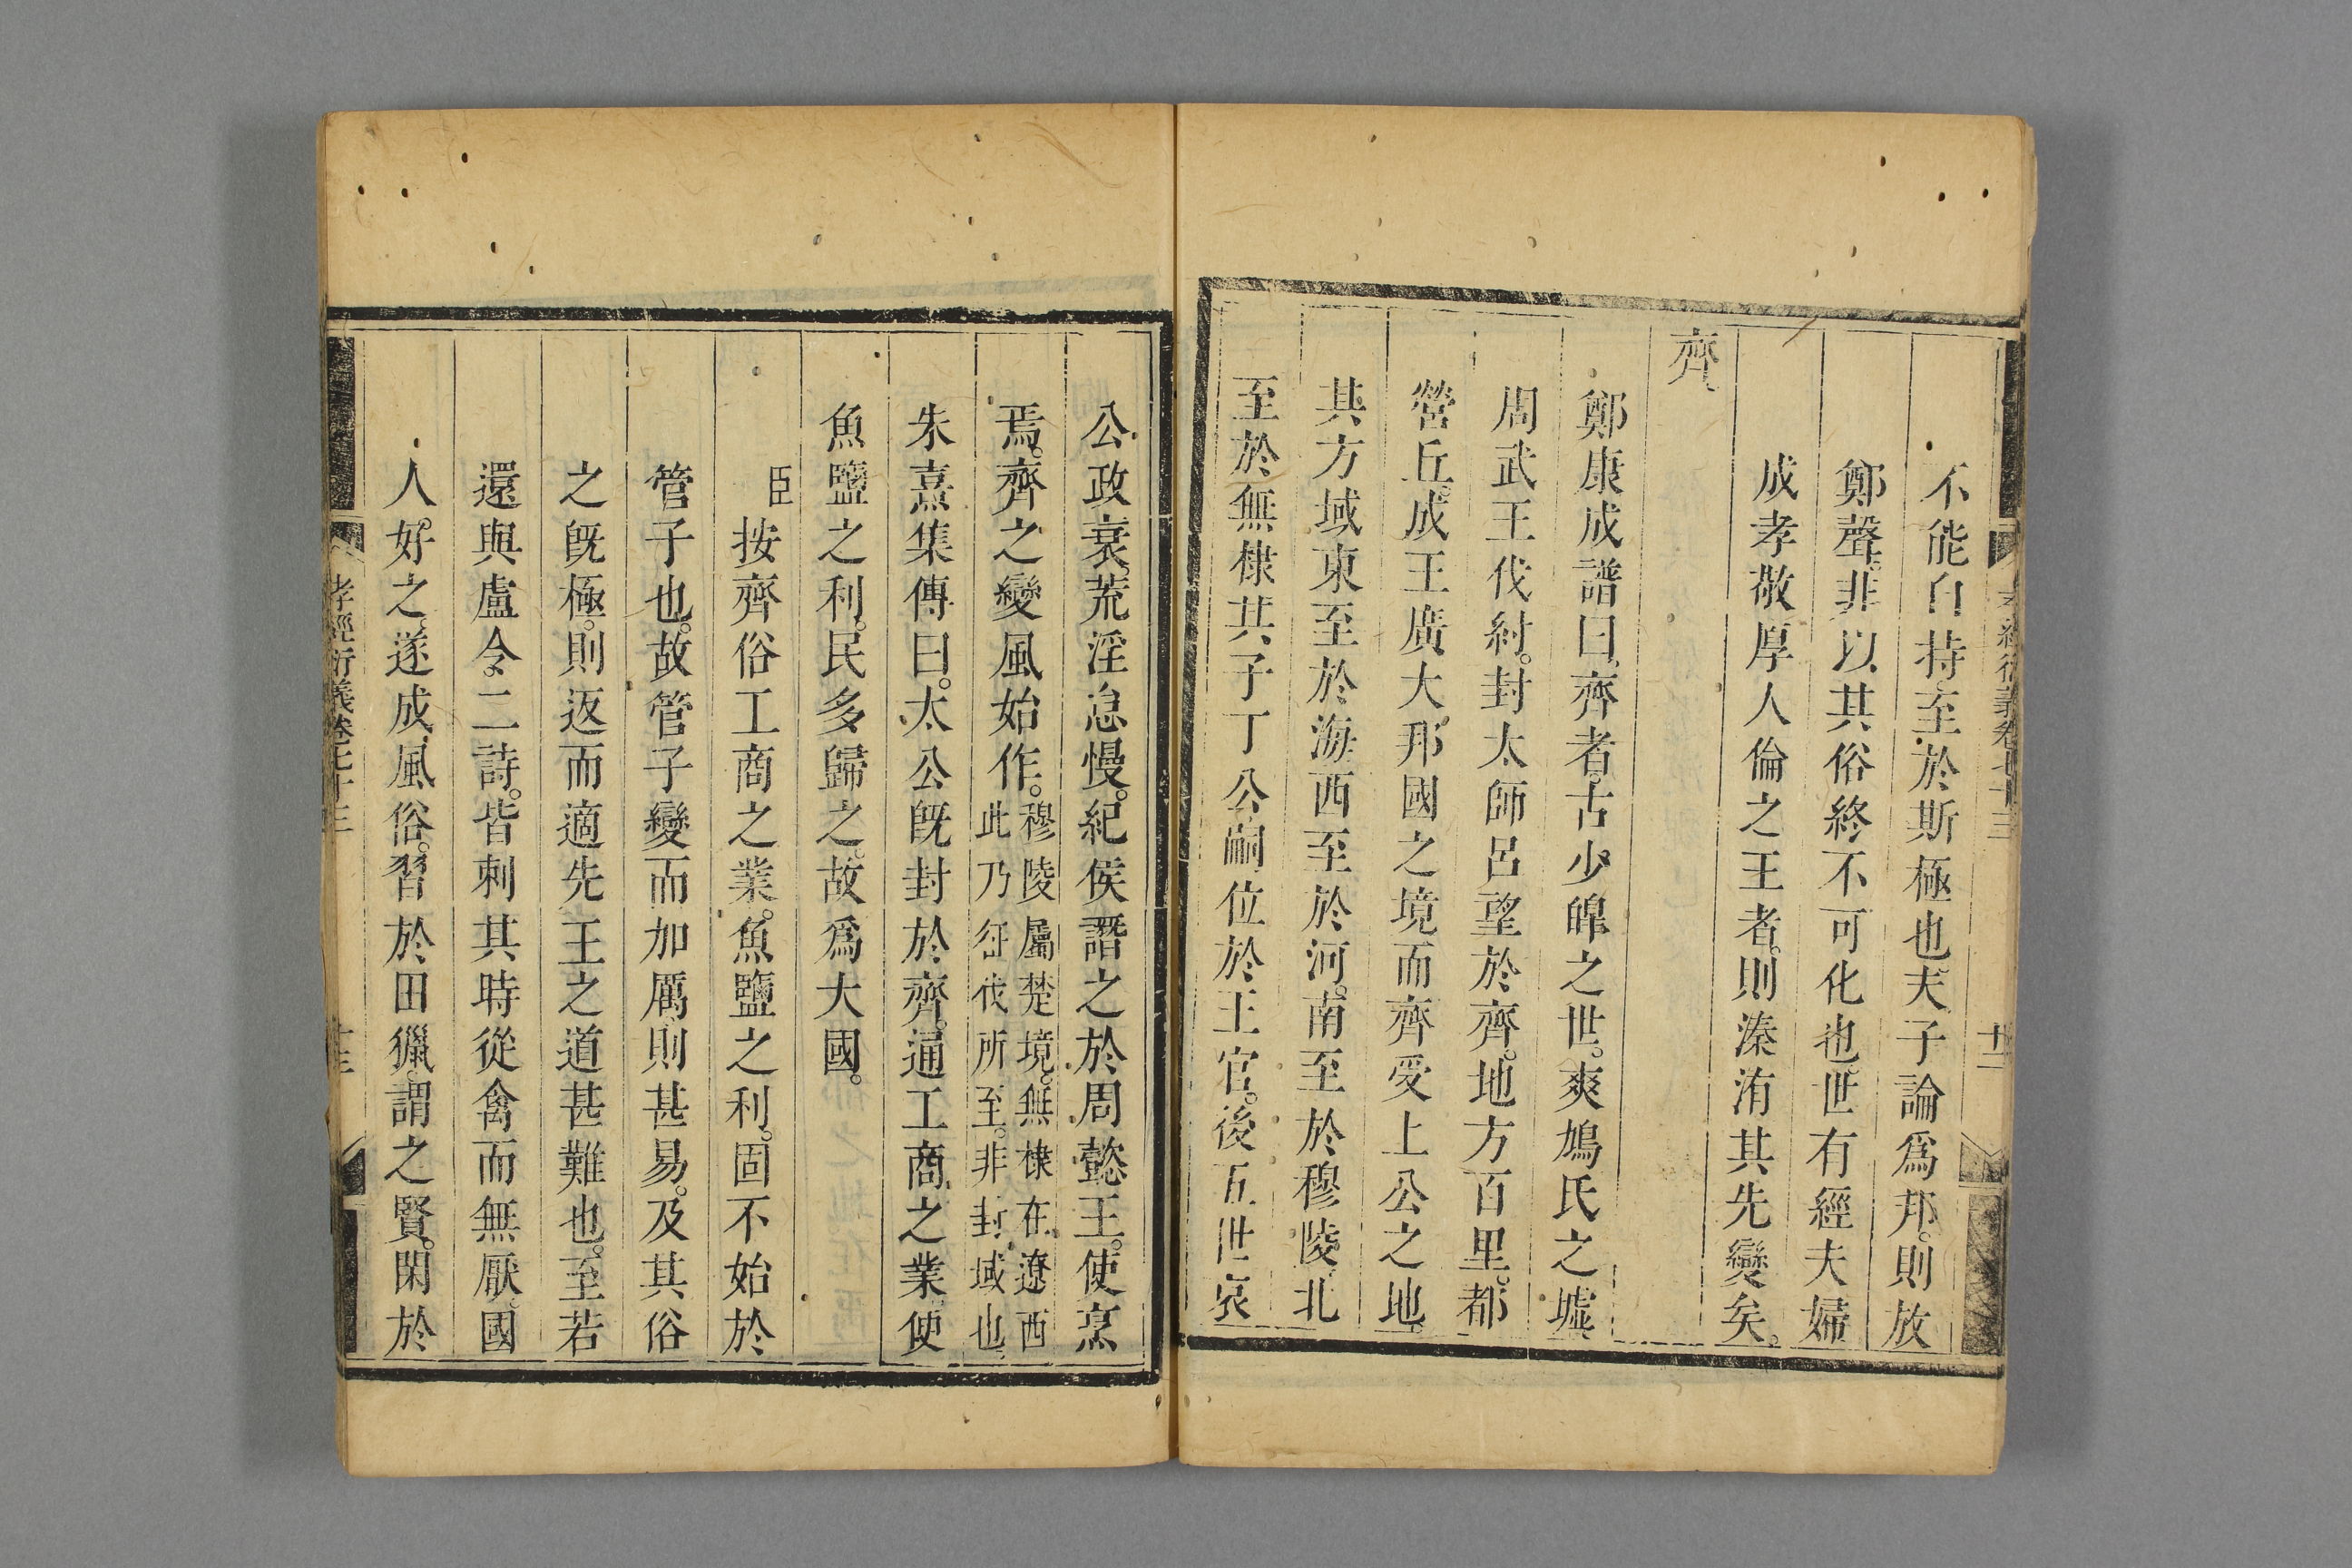 孝經衍義卷七十三
十二
不能自持。至於斯極也。夫子論爲邦。則放
鄭聲。非以其俗終不可化也。世有經夫婦
成孝敬厚人倫之王者。則溱洧其先變矣。
齊
鄭康成譜曰。齊者。古少皞之世。爽鳩氏之墟
周武王伐紂。封太師呂望於齊。地方百里。都
營丘。成王廣大邦國之境而齊受上公之地。
其方域東至於海西至於河。南至於穆陵北
至於無棣其子丁公嗣位於王官。後五世哀
公政衰。荒淫怠慢。紀侯譖之於周懿王。使烹
焉。齊之變風始作。穆陵屬楚境。無棣在遼西
此乃征伐所至。非封域也。
朱熹集傳曰。太公旣封於齊。通工商之業。使
魚鹽之利。民多歸之。故爲大國。
臣按齊俗工商之業。魚鹽之利。固不始於
管子也。故管子變而加厲則甚易。及其俗
之旣極。則返而適先王之道甚難也。至若
還與盧令。二詩。皆刺其時從禽而無厭。國
人好之。遂成風俗。習於田獵。謂之賢。閑於
孝經衍義卷七十三
十三